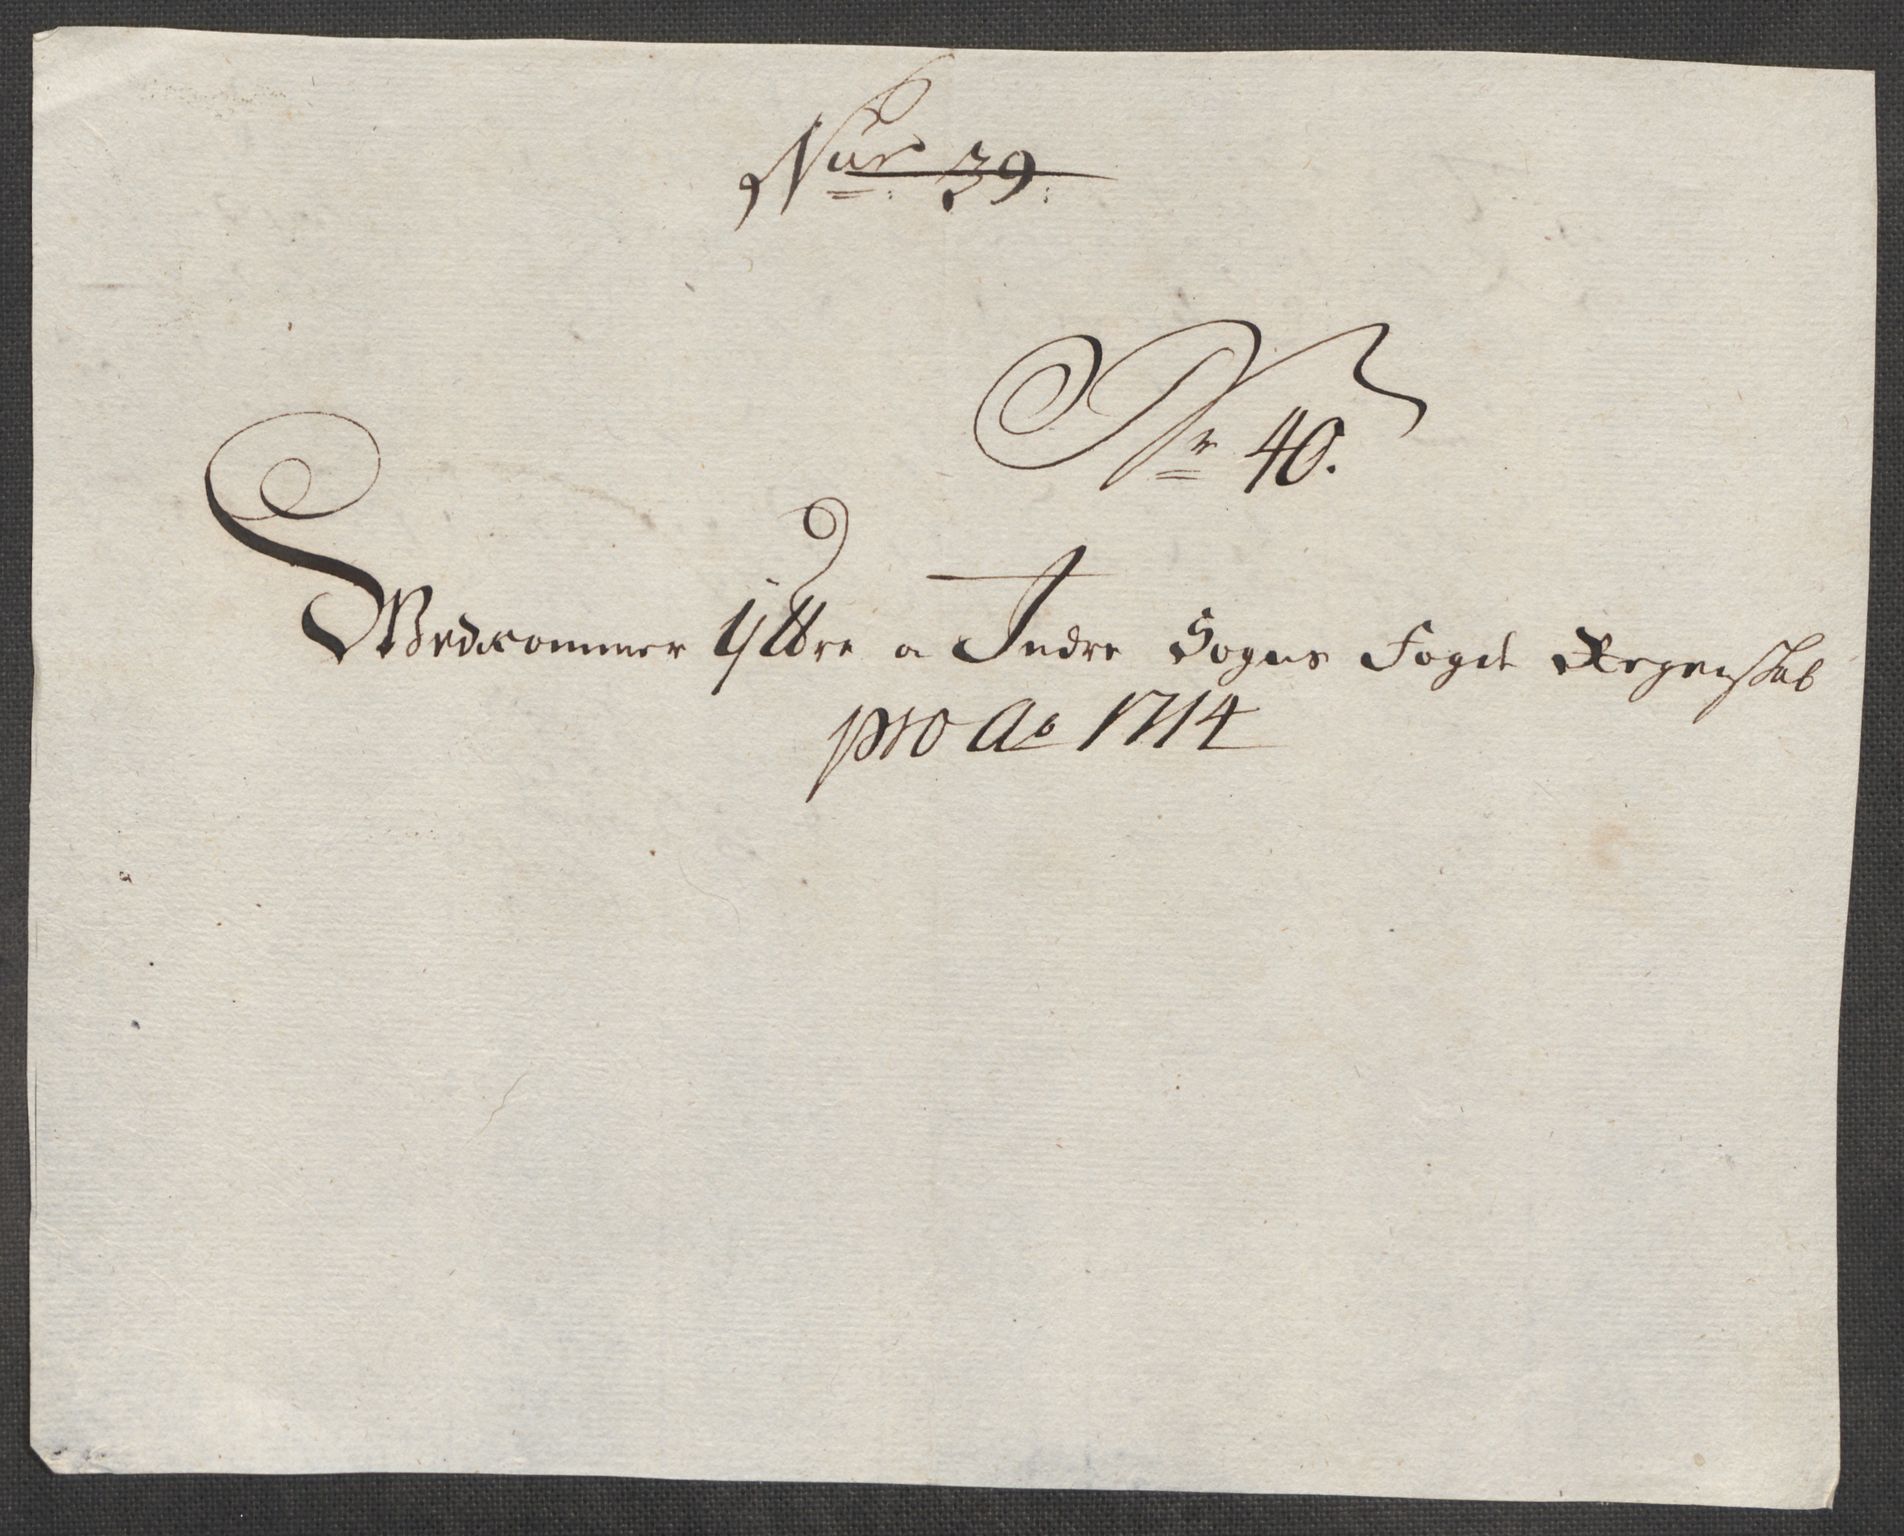 Nur 39:
Nr 40.
Wedkommer Ÿttre a Indre Sogns Fogit Regenskab
pro Ao 1714